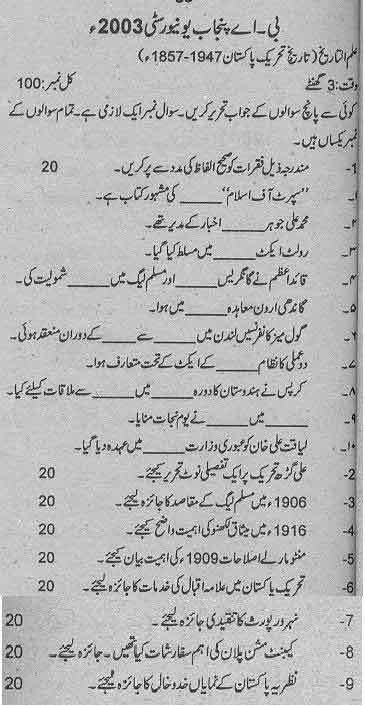 بی۔ اے پنجاب یونیورسٹی 2003ء
علم التاریخ (تاریخ تحریک پاکستان 1947-1857ء)
وقت: 3 گھنٹے کل نمبر: 100
کوئی سے پانچ سوالوں کے جواب تحریر کریں۔ سوال نمبر ایک لازمی ہے۔ تمام سوالوں کے
نمبر یکساں ہیں۔
1- مندرجہ ذیل فقرات کو صحیح الفاظ کی مدد سے پر کریں۔ 20
۱۔ ”سپرٹ آف اسلام“ ______ کی مشہور کتاب ہے۔
۲۔ محمد علی جوہر ______ اخبار کے مدیر تھے۔
۳۔ رولٹ ایکٹ ______ میں مسلط کیا گیا۔
۴۔ قائداعظم نے کانگریس ______ اور مسلم لیگ میں ______ شمولیت کی۔
۵۔ گاندھی ارون معاہدہ ______ میں ہوا۔
۶۔ گول میز کانفرنسیں لندن میں ______ سے ______ کے دوران منعقد ہوئی۔
۷۔ دو عملی کا نظام ______ کے ایکٹ کے تحت متعارف ہوا۔
۸۔ کرپس نے ہندوستان کا دورہ ______ میں ______ سے ملاقات کیلئے کیا۔
۹۔ ______ میں ______ نے یوم نجات منایا۔
۱۰۔ لیاقت علی خان کو عبوری وزارت ______ میں عہدہ دیا گیا۔
2- علی گڑھ تحریک پر ایک تفصیلی نوٹ تحریر کیجئے۔ 20
3- 1906ء میں مسلم لیگ کے مقاصد کا جائزہ لیجئے۔ 20
4- 1916ء میں میثاق لکھنو کی اہمیت واضح کیجئے۔ 20
5- منٹو مارلے اصلاحات 1909ء کی اہمیت بیان کیجئے۔ 20
6- تحریک پاکستان میں علامہ اقبال کی خدمات کا جائزہ لیجئے۔ 20
7- نہرو رپورٹ کا تنقیدی جائزہ لیجئے۔ 20
8- کیبنٹ مشن پلان کی اہم سفارشات کیا تھیں۔ جائزہ لیجئے۔ 20
9- نظریہ پاکستان کے نمایاں خدوخال کا جائزہ لیجئے۔ 20